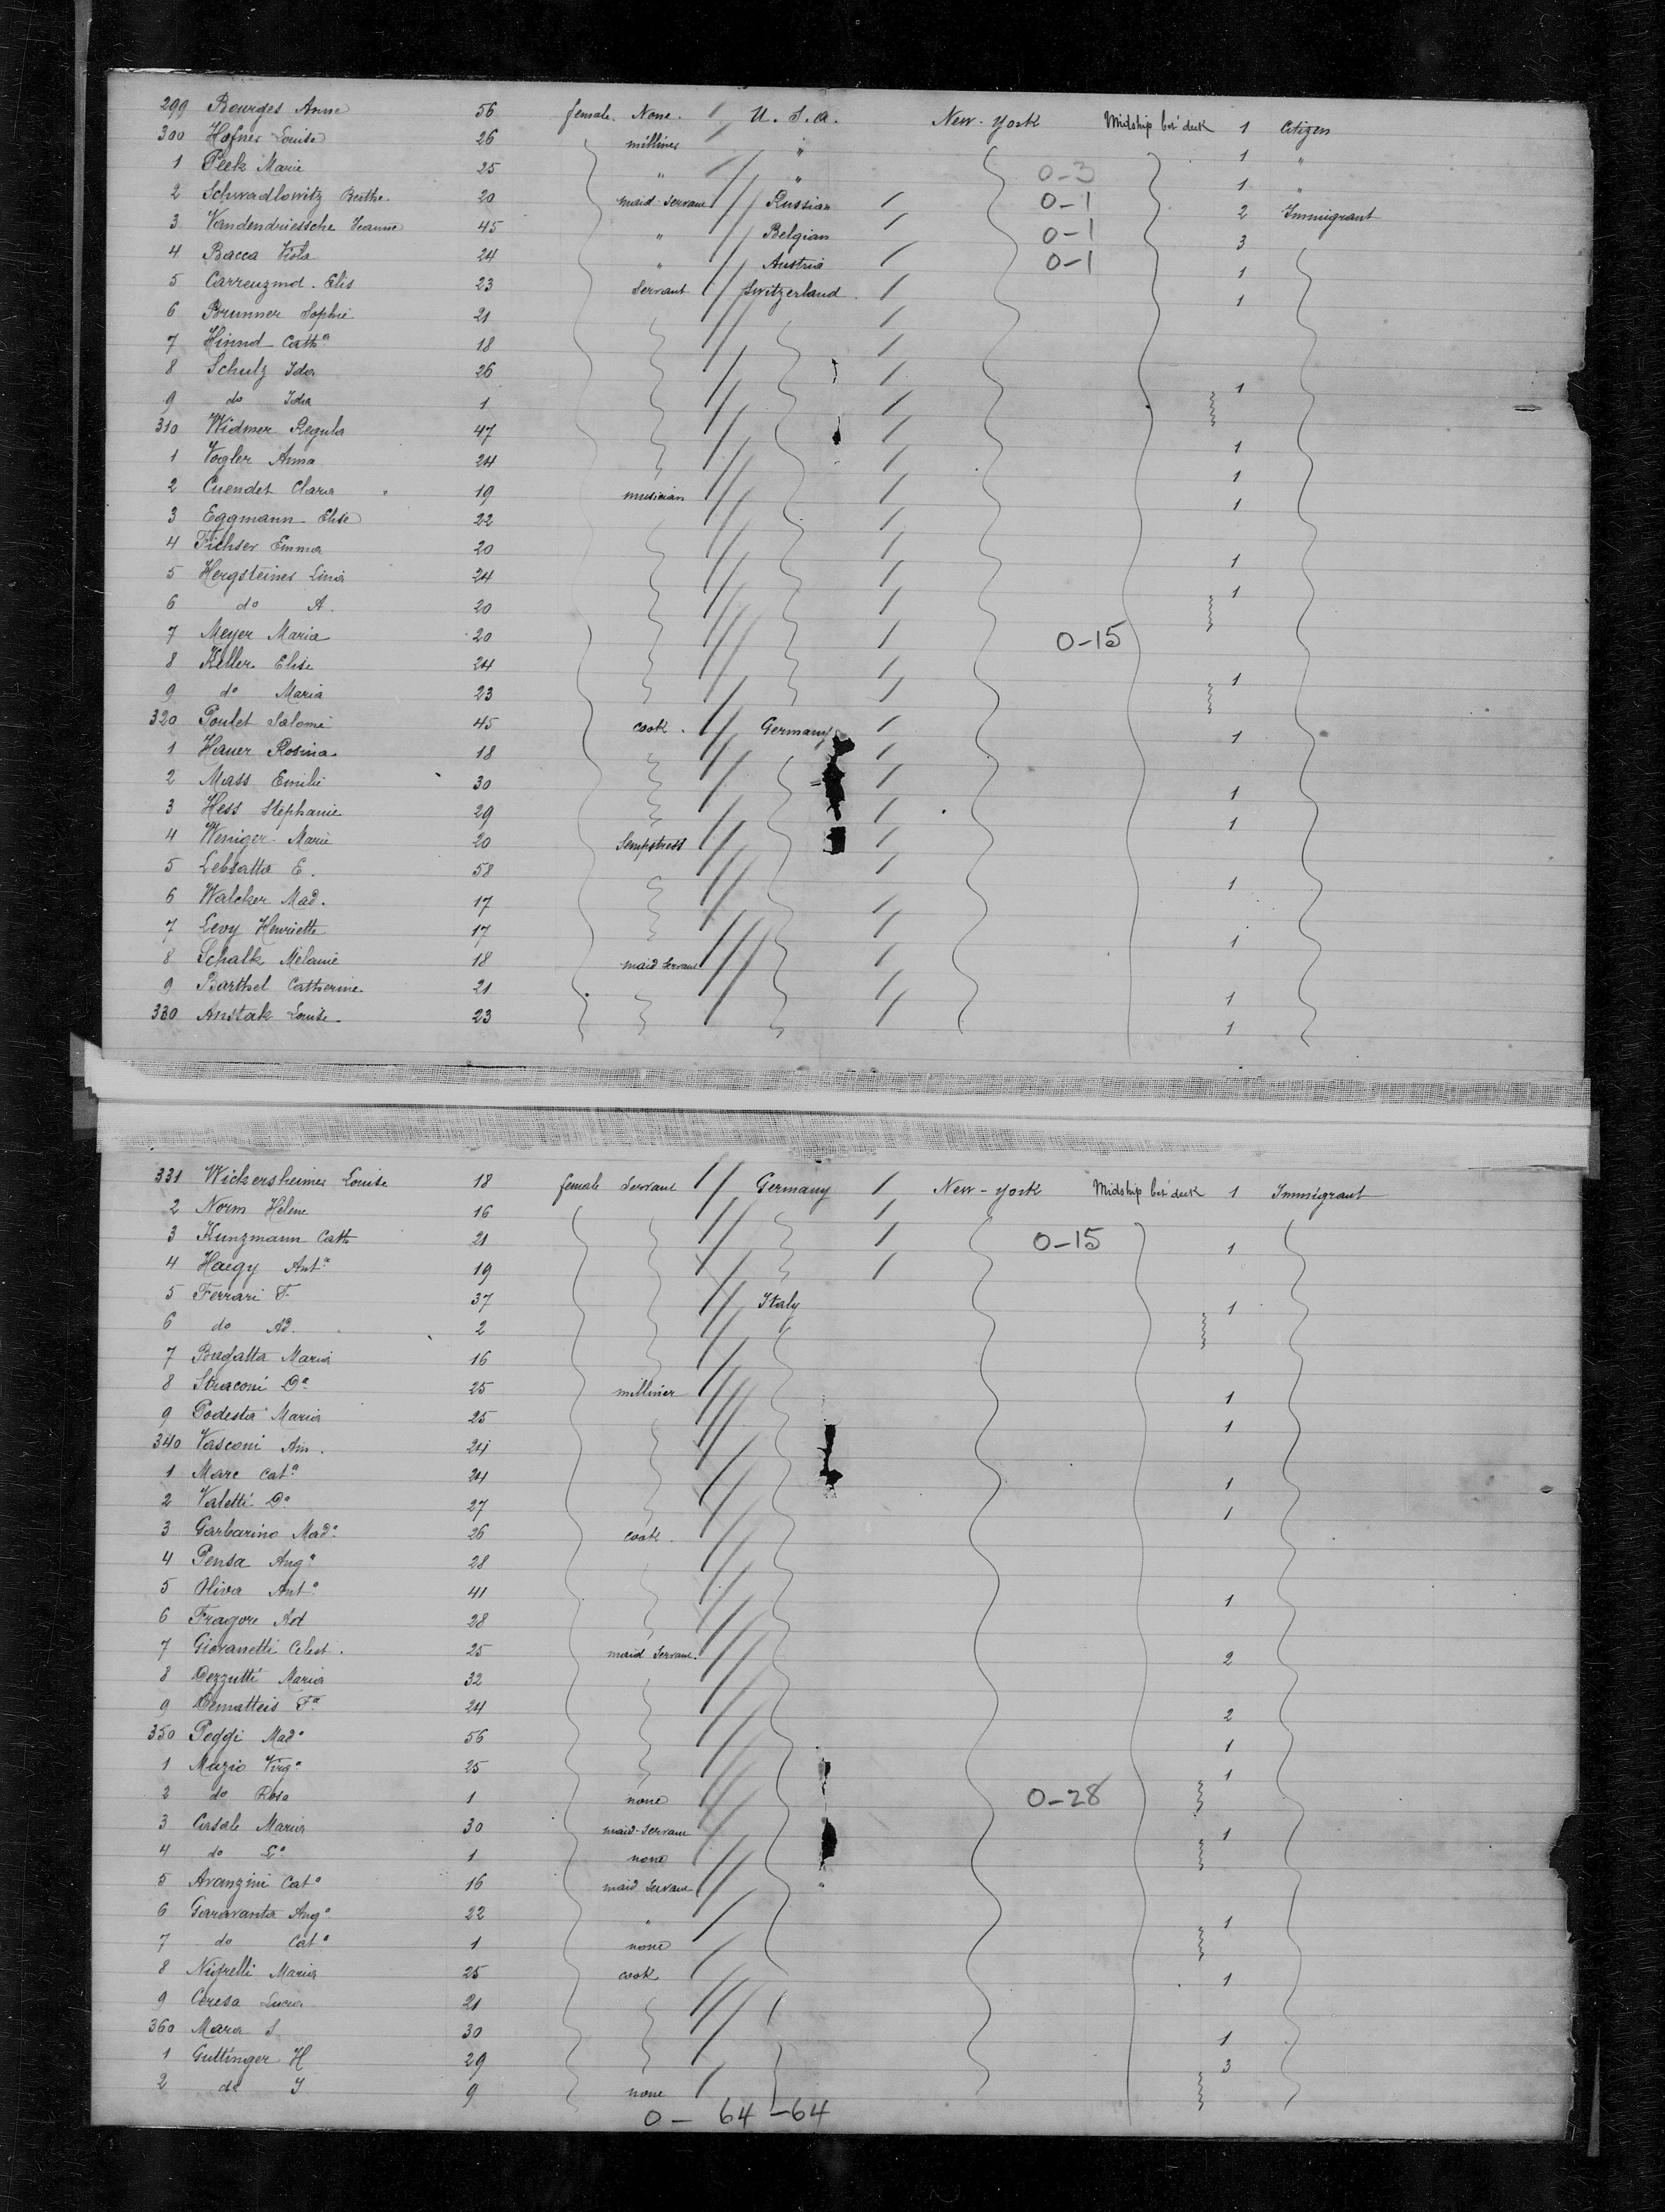 299 Bourges Anne 56 female. None. U.S.A. New-York Midship bet' deck 1 Citizen
300 Hofner Louise 26 milliner " 1 "
1 Peek Marie 25 " " 0-3 1 "
2 Schwadlowitz Berthe. 20 maid Servant Russian 0-1 2 Immigrant
3 Vandendriessche Jeanne 45 " Belgian 0-1 3
4 Bacca Viola 24 " Austria 0-1 1
5 Carreuzmd. Elis 23 Servant Switzerland 1
6 Brunner Sophie 21
7 Hinnd Cath.a 18
8 Schulz Ida 26 1
9 do Ida 1
310 Widmer Regula 47 1
1 Vogler Anna 24 1
2 Cuendet Clara 19 musician 1
3 Eggmann Elise 22
4 Fichser Emma 20 1
5 Hergsteiner Lina 24 1
6 do A. 20
7 Meyer Maria 20 0-15
8 Keller Elise 24 1
9 do Maria 23
320 Poulet Salomé 45 cook. Germany 1
1 Hauer Rosina 18
2 Mass Emilie 30 1
3 Hess Stephanie 29 1
4 Weniger Marie 20 Sempstress
5 Lebsatta E. 58 1
6 Walcker Mad. 17
7 Levy Henriette 17 1
8 Schalk Melanie 18 maid Servant
9 Barthel Catherine 21 1
330 Anstak Louise 23 1
331 Wickersheimer Louise 18 female Servant Germany New-York Midship bet' deck 1 Immigrant
2 Norm Helene 16
3 Kunzmann Cath 21 0-15 1
4 Haegy Ant.a 19
5 Ferrari F. 37 Italy 1
6 do Ad. 2
7 Bugatta Maria 16
8 Straconi D.a 25 milliner 1
9 Podesta Maria 25 1
340 Vasconi Am. 24
1 Mare Cat.a 24 1
2 Valetti D.a 27 1
3 Garbarino Mad.a 26 cook
4 Pensa Ang.a 28
5 Oliva Ant.a 41 1
6 Fragore Ad 28
7 Giovanetti Celest. 25 maid Servant. 2
8 Dezzutti Maria 32
9 Dematteis F.a 24 2
350 Poggi Mad.a 56 1
1 Muzio Virg.a 25 1
2 do Rosa 1 none 0-28
3 Casale Maria 30 maid-Servant 1
4 do L.a 1 none
5 Avanzini Cat.a 16 maid Servant
6 Garavanta Ang.a 22 " 1
7 do Cat.a 1 none
8 Nigrelli Maria 25 cook 1
9 Ceresa Lucia 21
360 Mara S. 30 1
1 Guttinger H 29 3
2 do J 9 none
0 - 64 - 64